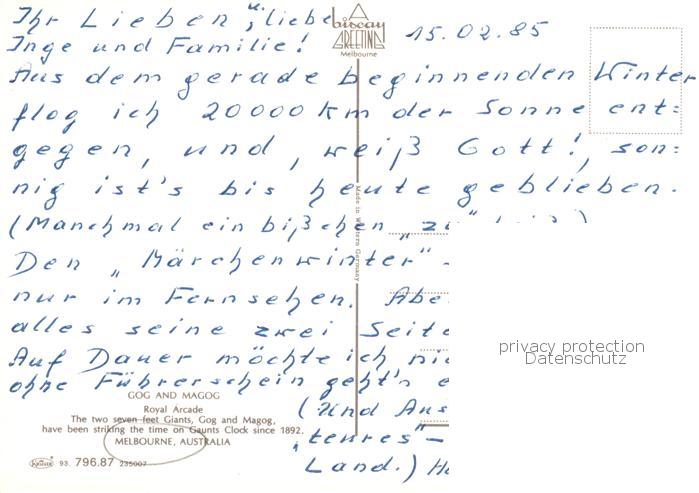 Ihr Lieben, liebe
Inge und Familie!
A biscay GREETING
Melbourne
15.02.85
Aus dem gerade beginnenden Winter
flog ich 20000 km der Sonne ent=
gegen, und, weiß Gott!, son=
nig ist's bis heute geblieben.
(Manchmal ein bißchen „zu"
Den „Märchenwinter" -
nur im Fernsehen. Abe
alles seine zwei Seite
Auf Dauer möchte ich nic
ohne Führerschein geht's e
(Und Aus
„teures"-
Land.)
Made in Western Germany
privacy protection
Datenschutz
GOG AND MAGOG
Royal Arcade
The two seven feet Giants, Gog and Magog,
have been striking the time on Gaunts Clock since 1892.
MELBOURNE, AUSTRALIA
Krüger 93. 796.87 235007